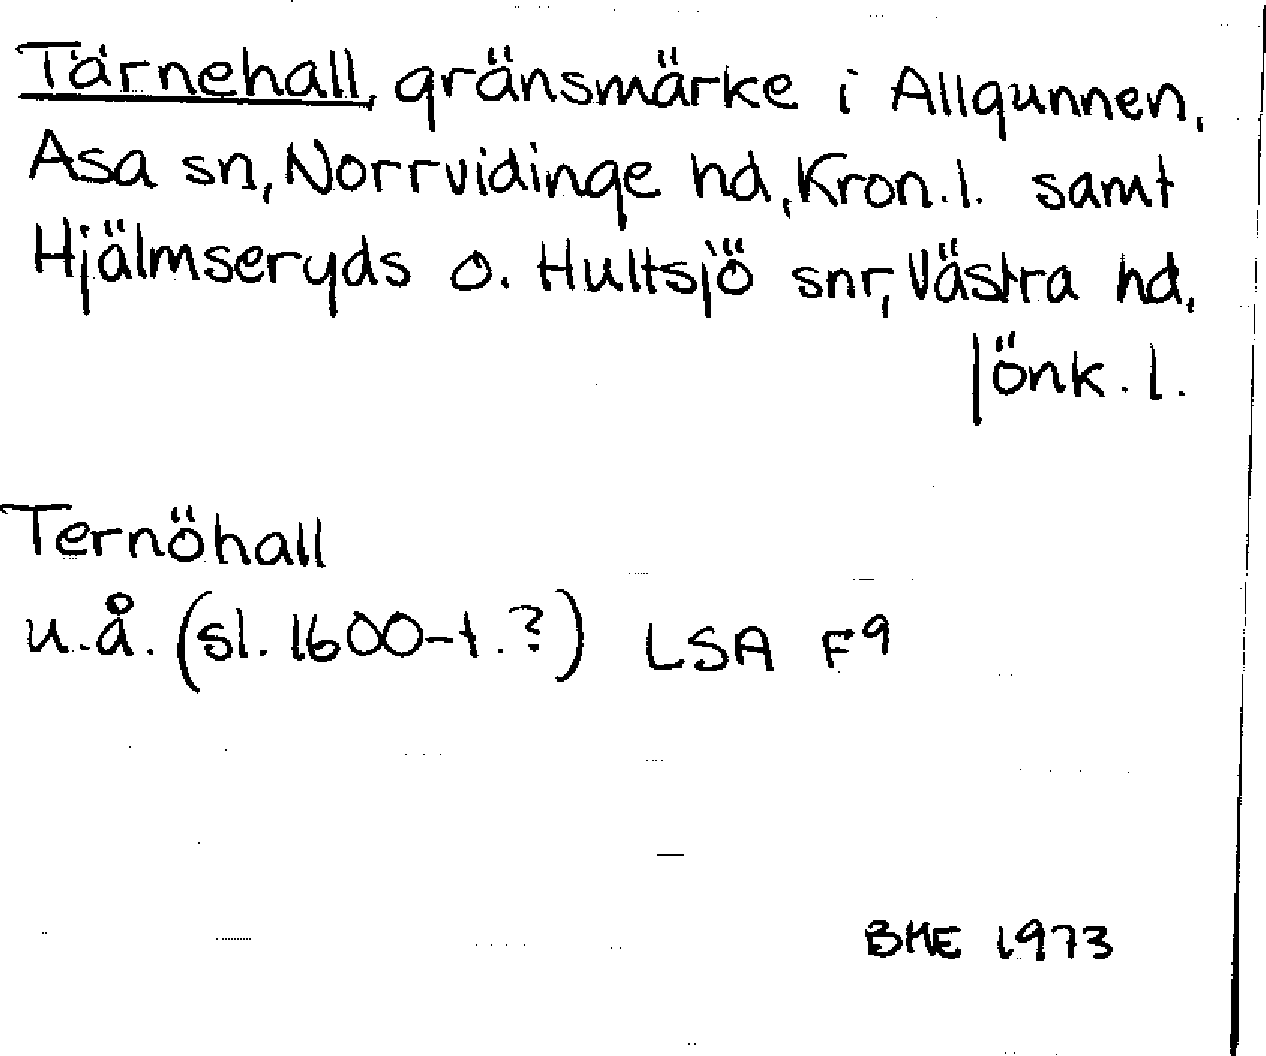 Tärnehall, gränsmärke i Allgunnen,
Asa sn, Norrvidinge hd, Kron. l. samt
Hjälmseryds o. Hultsjö snr, Västra hd,
Jönk. l.
Ternöhall
u.å. (sl. 1600-t. ?) LSA F9
BME 1973